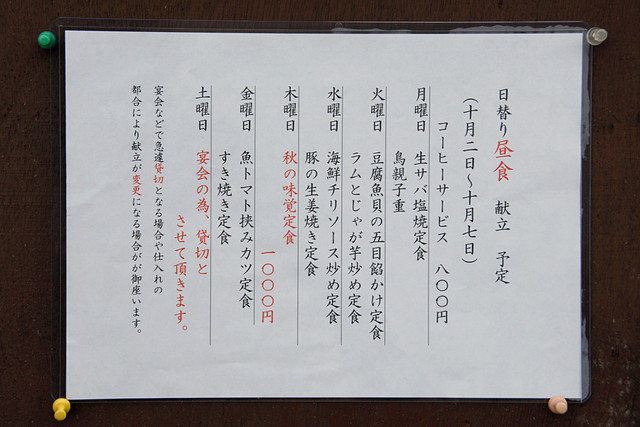 日替り昼食　献立　予定
（十月二日～十月七日）
コーヒーサービス　八〇〇円
月曜日　生サバ塩焼定食
鳥親子重
火曜日　豆腐魚貝の五目餡かけ定食
ラムとじゃが芋炒め定食
水曜日　海鮮チリソース炒め定食
豚の生姜焼き定食
木曜日　秋の味覚定食
一〇〇〇円
金曜日　魚トマト挟みカツ定食
すき焼き定食
土曜日　宴会の為、貸切と
させて頂きます。
宴会などで急遽貸切となる場合や仕入れの
都合により献立が変更になる場合がが御座います。